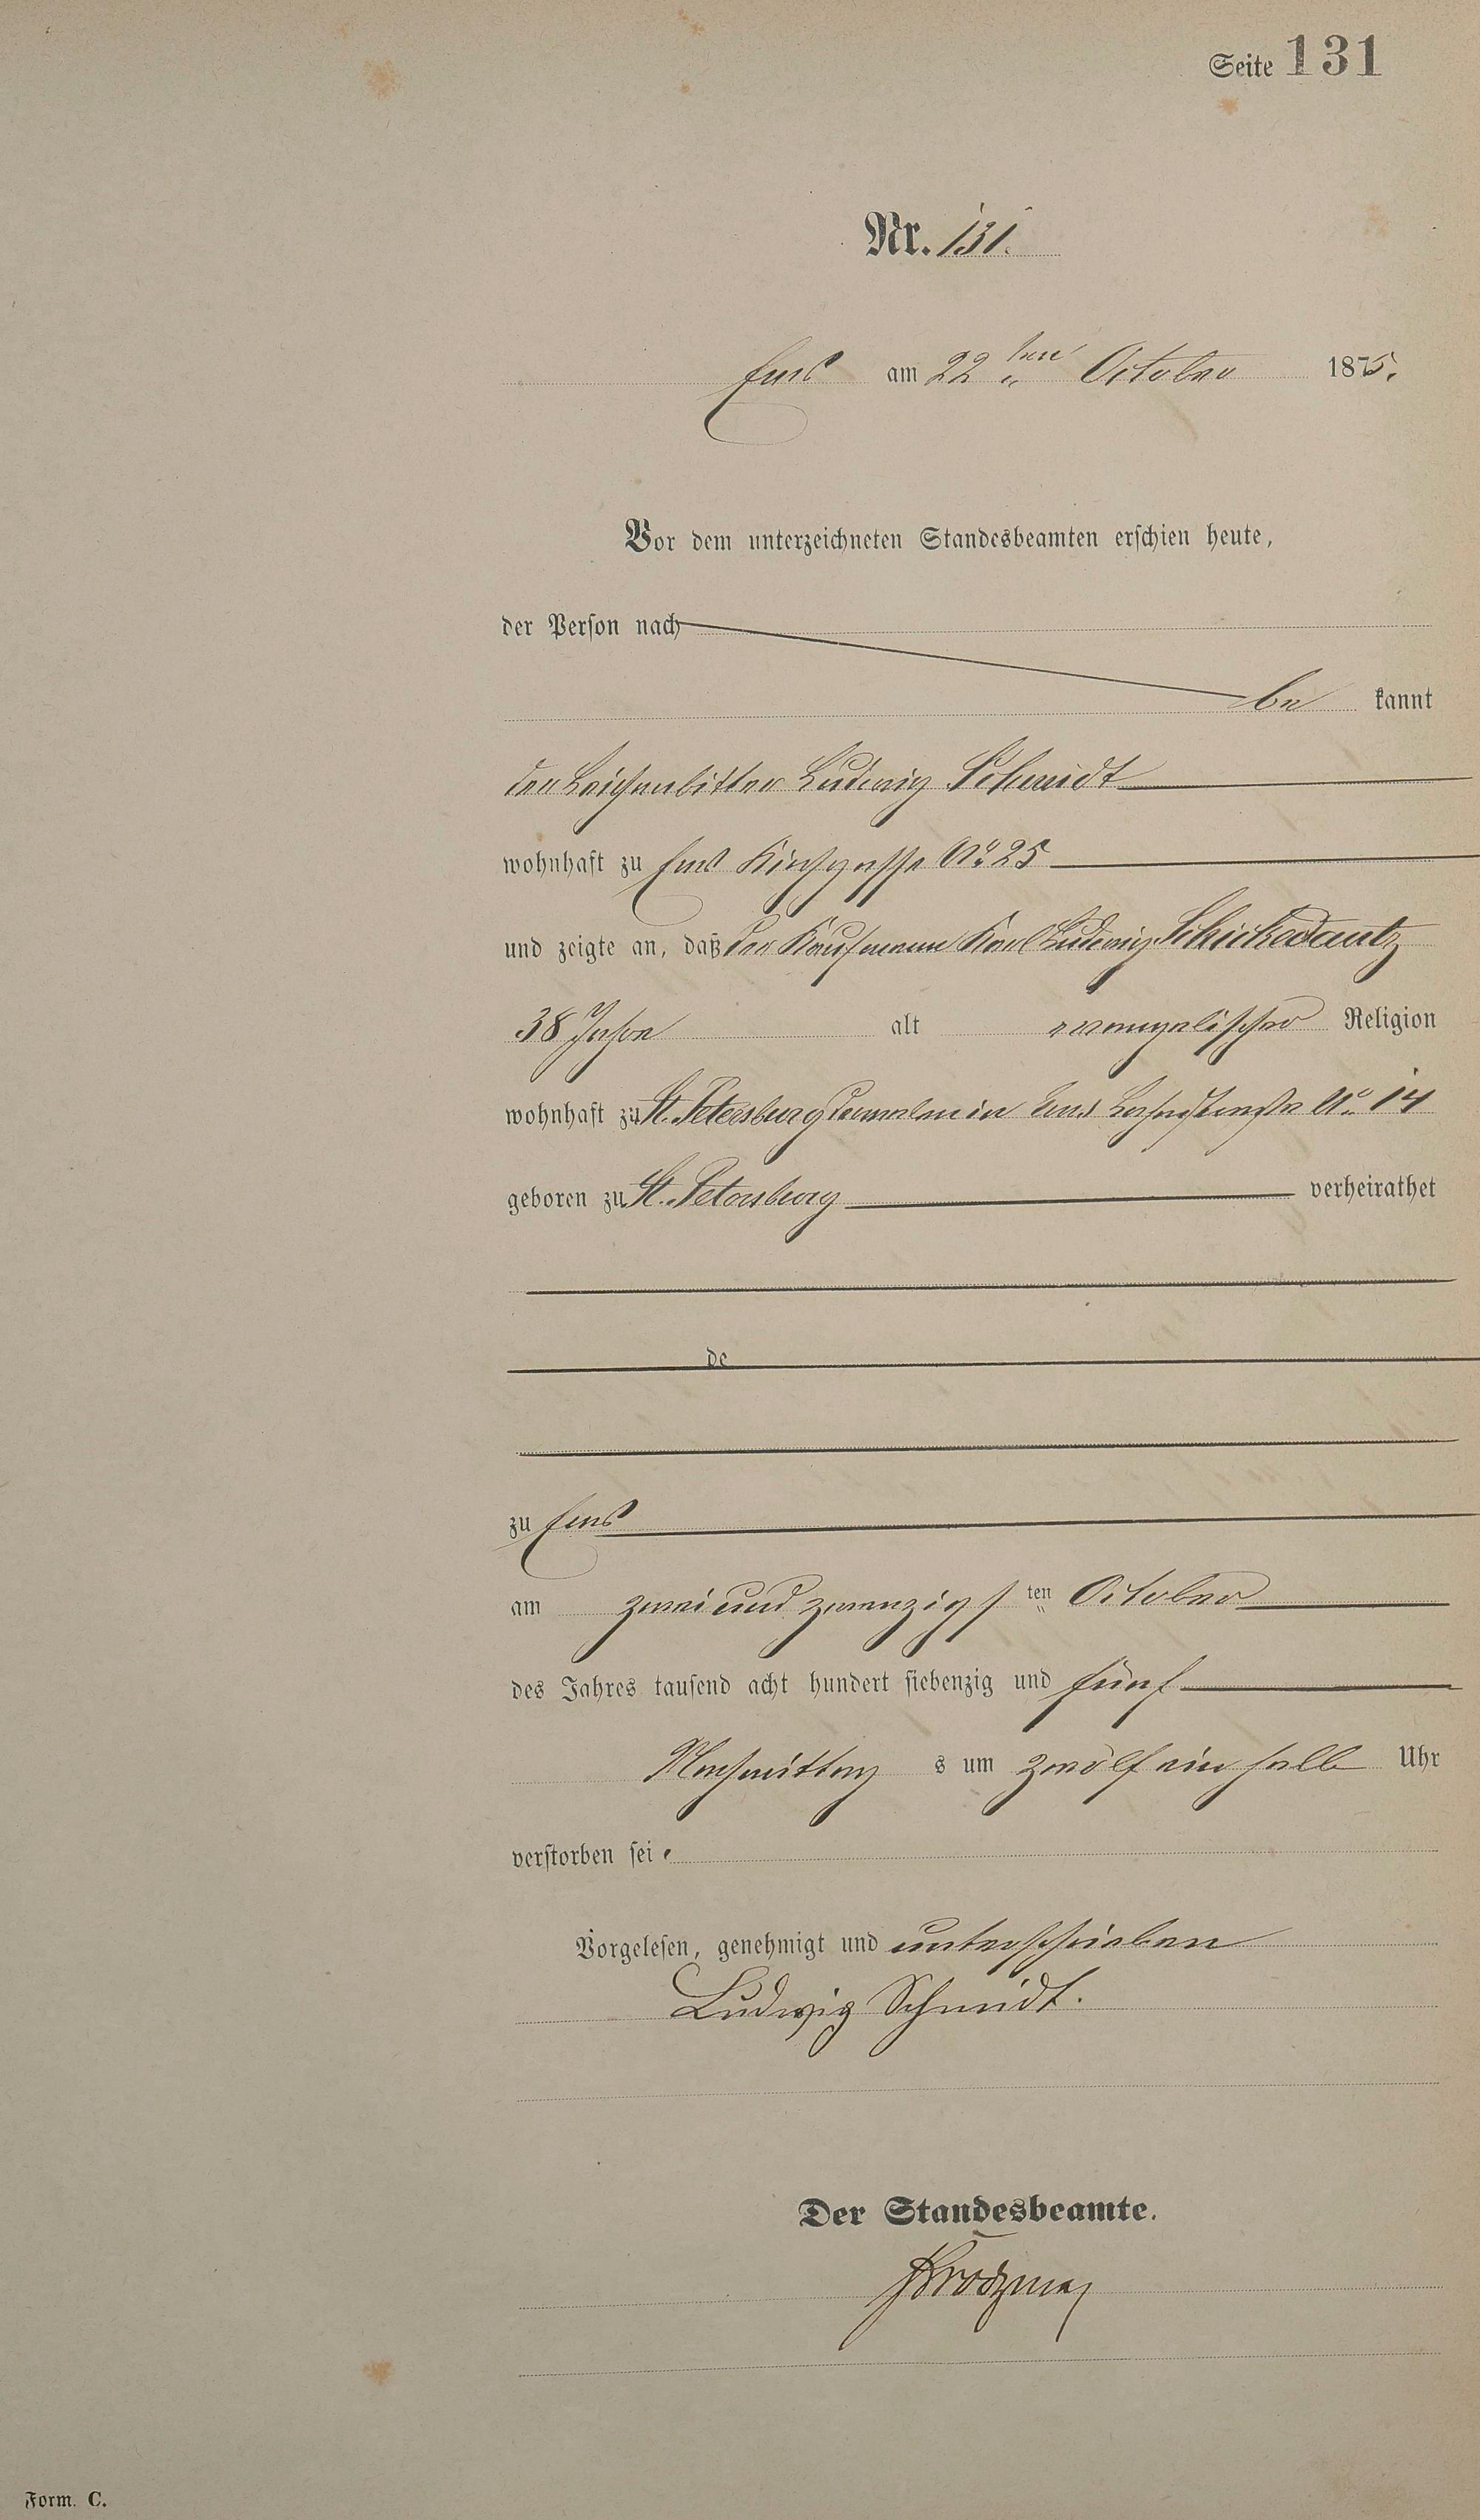 Seite 131
Nr. 131.
Ems am 22 ten October 1875.
Vor dem unterzeichneten Standesbeamten erschien heute,
der Person nach
be kannt
der Leichenbitter Ludwig Schmidt
wohnhaft zu Ems Kirchgasse No 25
und zeigte an, daß der Kaufmann Karl Ludwig Schickedantz
38 Jahre alt evangelischer Religion
wohnhaft zu St. Petersburg dermalen in Ems No 14
geboren zu St. Petersburg verheirathet
de
zu Ems
am zwei und zwanzigs ten October
des Jahres tausend acht hundert siebenzig und fünf
Nachmittag s um zwölf ein halb Uhr
verstorben sei.
Vorgelesen, genehmigt und unterschrieben
Ludwig Schmidt.
Der Standesbeamte.
Form. C.